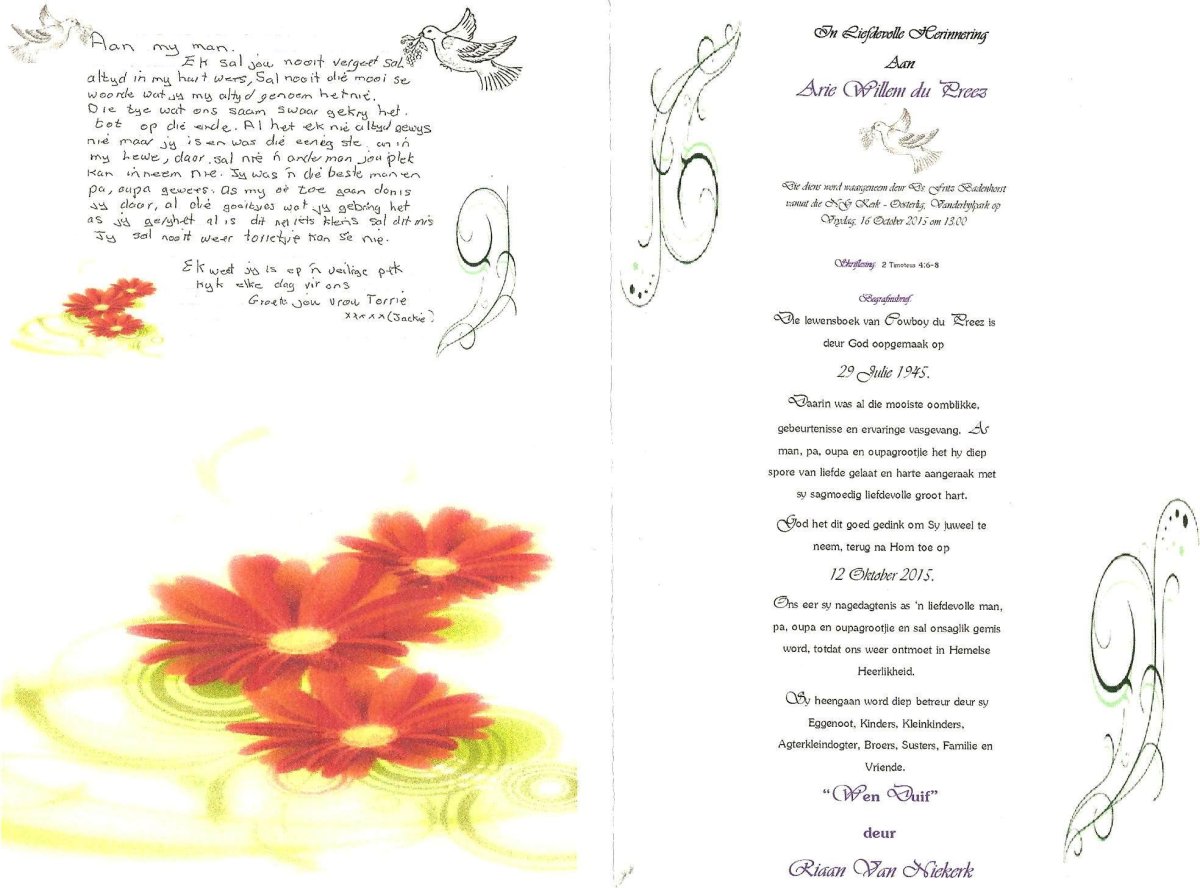 Aan my man.
Ek sal jou nooit vergeet sal
altyd in my hart wees, Sal nooit dié mooi se
woorde wat jy my altyd genoem het nié.
Die tye wat ons saam swaar gekry het.
tot op dié ende. Al het ek nié altyd gewys
nié maar jy is en was dié eenigste man in
my lewe, daar sal nié 'n ander man jou plek
kan inneem nie. Jy was 'n dié beste man en
pa, oupa gewees. As my oë toe gaan dan is
jy daar, al dié goeitjies wat jy gebring het
as jy gery het al is dit net iets kleins sal dit mis
Jy sal nooit weer torretjie kan sê nie.
Ek weet jy is op 'n veilige plek
kyk elke dag vir ons
Groete jou vrou Torrie
xxxxx (Jackie)
In Liefdevolle Herinnering
Aan
Arie Willem du Preez
Die diens word waargeneem deur Ds Fritz Badenhorst
vanuit die NG Kerk - Oosterlig, Vanderbijlpark op
Vrydag, 16 October 2015 om 13:00
Skriflesing: 2 Timoteus 4:6-8
Begrafnisbrief:
Die lewensboek van Cowboy du Preez is
deur God oopgemaak op
29 Julie 1945.
Daarin was al die mooiste oomblikke,
gebeurtenisse en ervaringe vasgevang. As
man, pa, oupa en oupagrootjie het hy diep
spore van liefde gelaat en harte aangeraak met
sy sagmoedig liefdevolle groot hart.
God het dit goed gedink om Sy juweel te
neem, terug na Hom toe op
12 Oktober 2015.
Ons eer sy nagedagtenis as 'n liefdevolle man,
pa, oupa en oupagrootjie en sal onsaglik gemis
word, totdat ons weer ontmoet in Hemelse
Heerlikheid.
Sy heengaan word diep betreur deur sy
Eggenoot, Kinders, Kleinkinders,
Agterkleindogter, Broers, Susters, Familie en
Vriende.
"Wen Duif"
deur
Riaan Van Niekerk